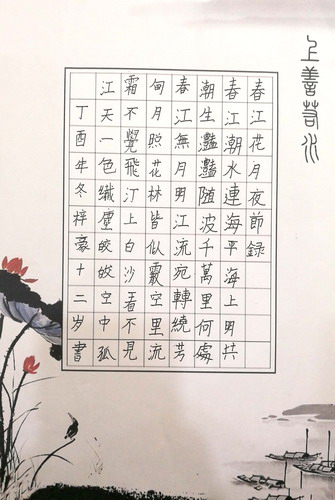 上善若水
春江花月夜節録
春江潮水連海平海上明共
潮生灩灩随波千萬里何處
春江無月明江流宛轉繞芳
甸月照花林皆似霰空里流
霜不覺飛汀上白沙看不見
江天一色纖塵皎皎空中孤
丁酉年冬梓豪十二岁書